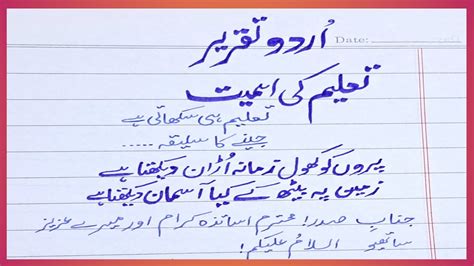 اُردو تقریر
Date:
تعلیم کی اہمیت
تعلیم ہی سکھاتی ہے
جینے کا سلیقہ .....
پیروں کو کھول زمانہ اُڑان دیکھتا ہے
زمین پہ بیٹھ کے کیا آسمان دیکھتا ہے
جنابِ صدر! محترم اساتذہ کرام اور میرے عزیز
ساتھیو السلامُ علیکم!